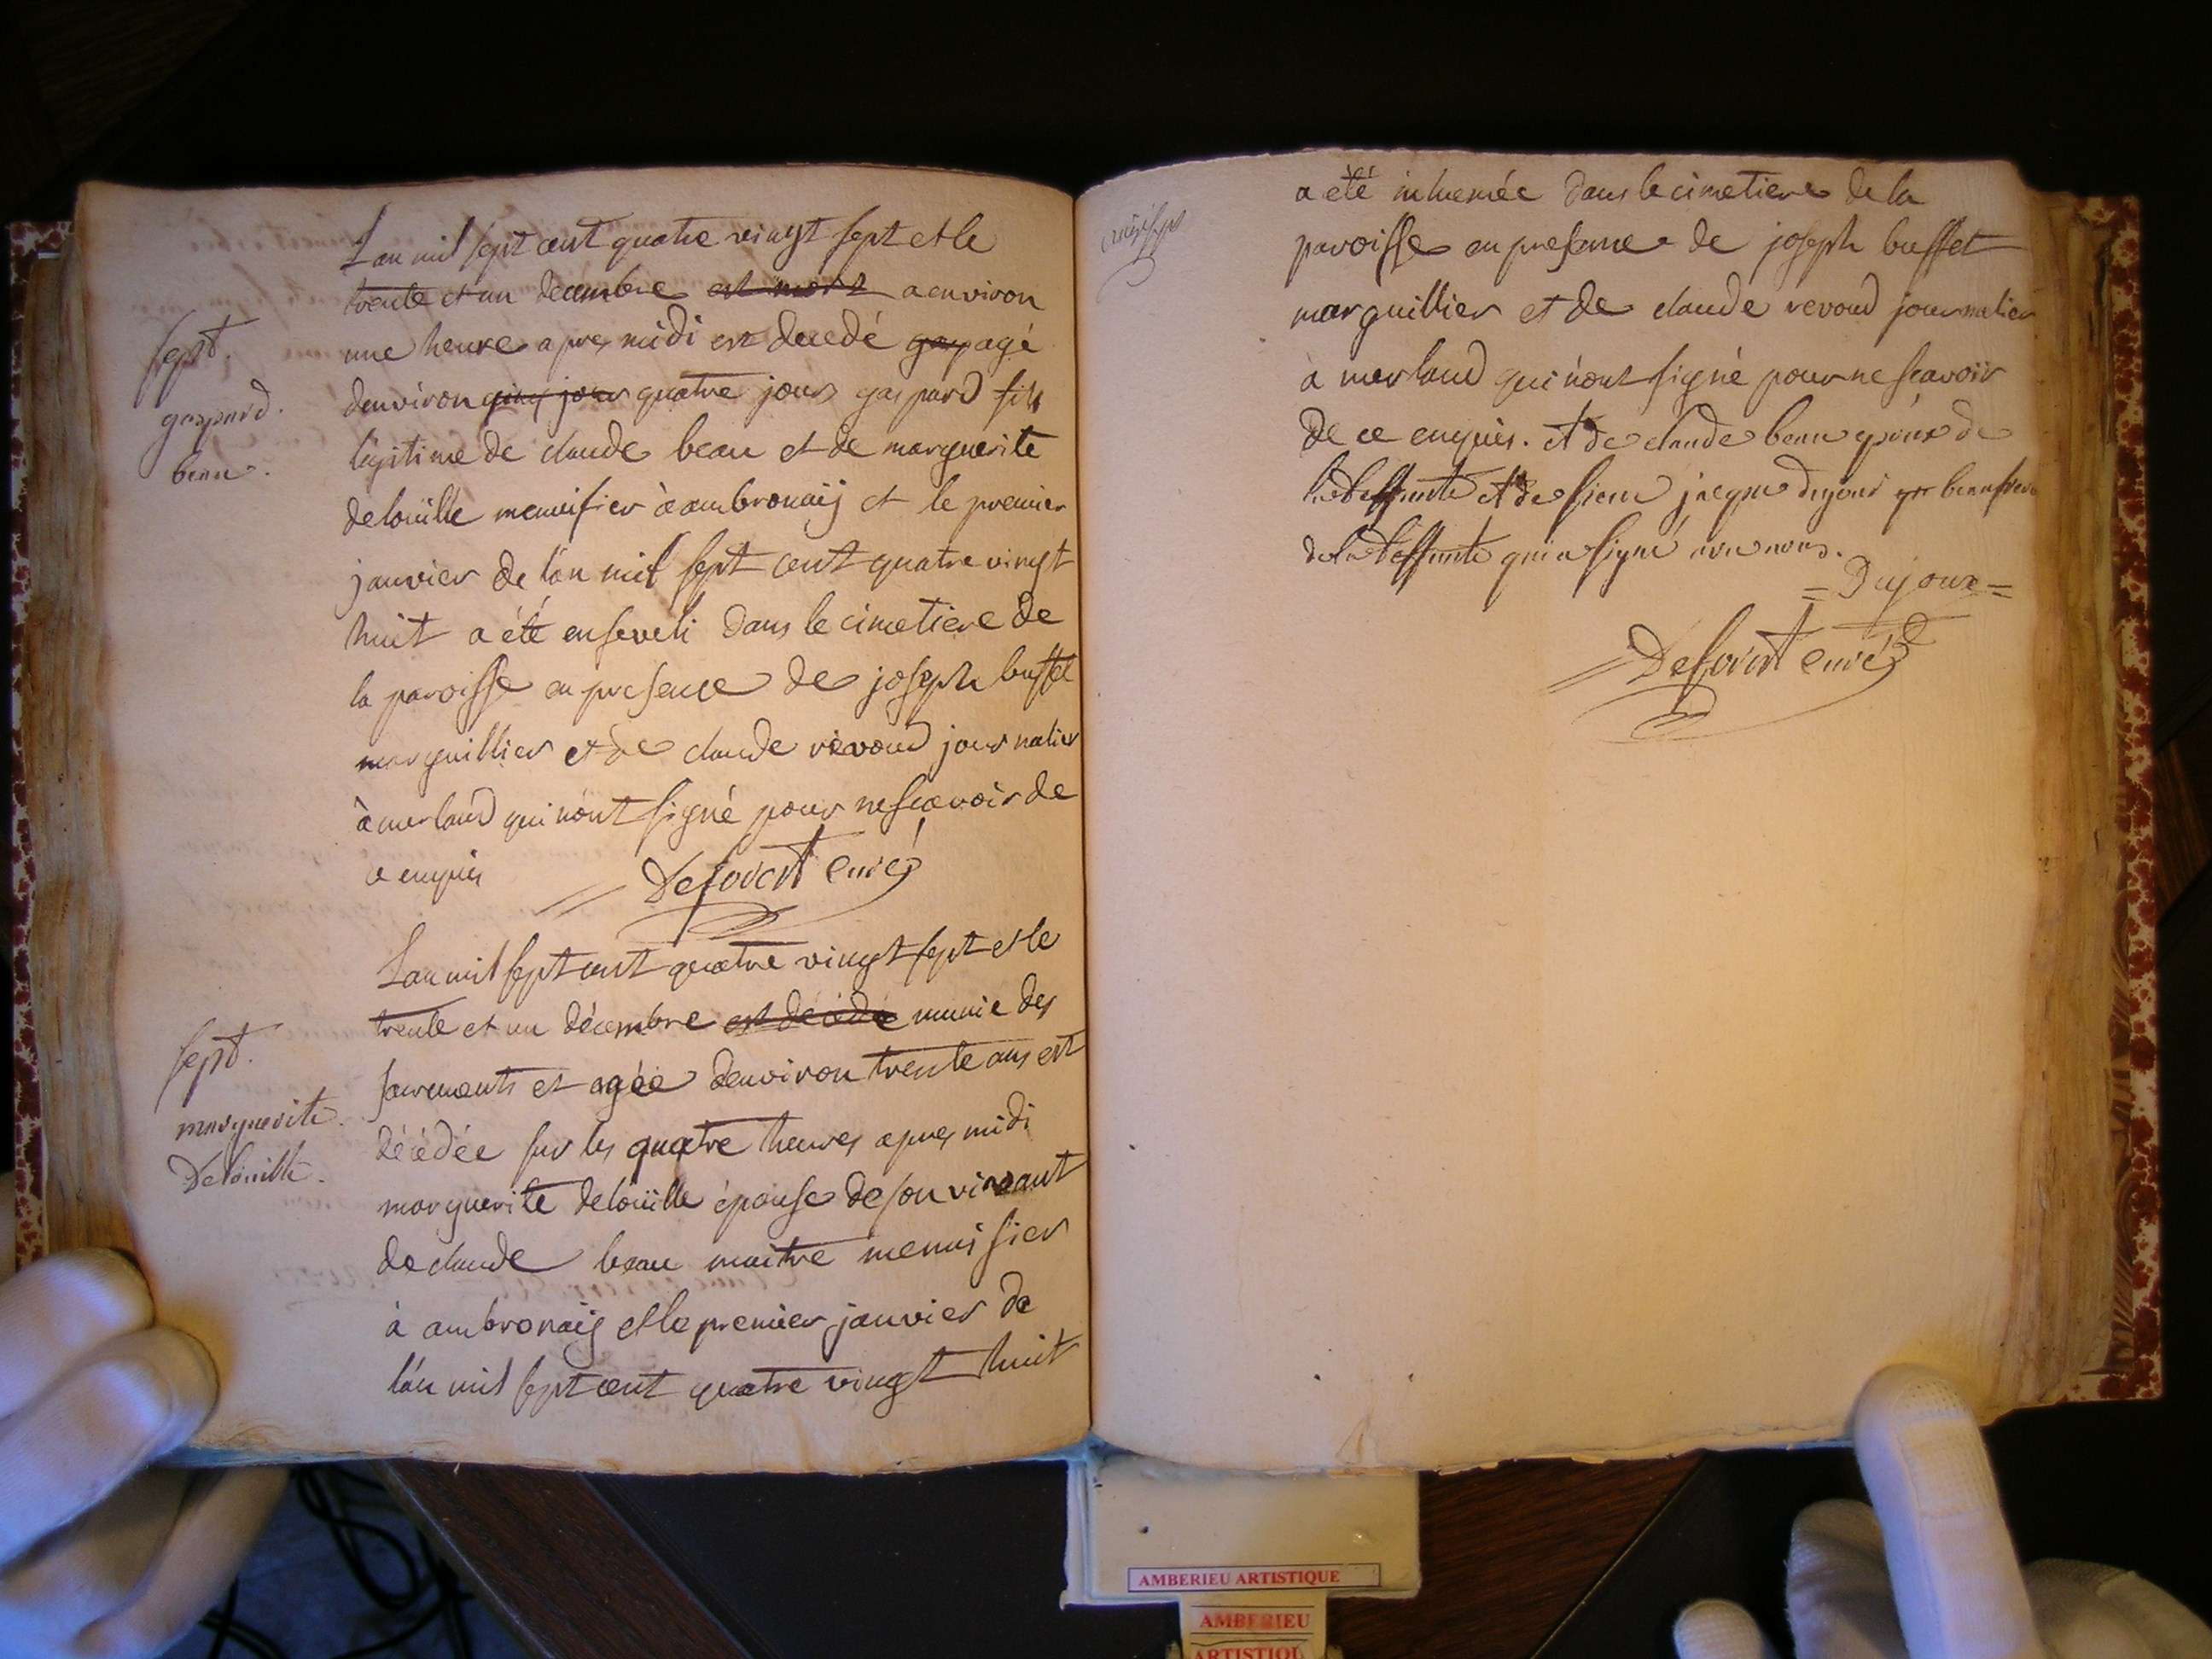 Lan mil sept cent quatre vingt sept et le
trente et un decembre est mort a environ
une heure apres midi est decedé gas agé
denviron cinq jour quatre jours gaspard fils
legitime de claude beau et de marguerite
deloüille menuisier à ambronaij et le premier
janvier de l'an mil sept cent quatre vingt
huit a été enseveli dans le cimetiere de
la paroisse en presence de joseph buffet
marguillier et de claude revoud journalier
à merland qui n'ont signé pour ne scavoir de
ce enquis
Deforest curé
sept.
gaspard.
beau.
Lan mil sept cent quatre vingt sept et le
trente et un décembre est décédée munie des
sacrements et agée denviron trente ans est
décédée sur les quatre heures apres midi
marguerite deloüille épouse de son vivant
de claude beau maitre menuisier
à ambronaij et le premier janvier de
l'an mil sept cent quatre vingt huit
sept.
marguerite.
Deloüille.
a été inhumée dans le cimetiere de la
paroisse en presence de joseph buffet
marguillier et de claude revoud journalier
à merland qui n'ont signé pour ne scavoir
de ce enquis. et de claude beau epoux de
la deffunte et de sieur jacque dujour beaufrere
de la deffunte qui a signé avec nous.
= Dujour =
Deforest curé
AMBERIEU ARTISTIQUE
AMBERIEU
ARTISTIQU